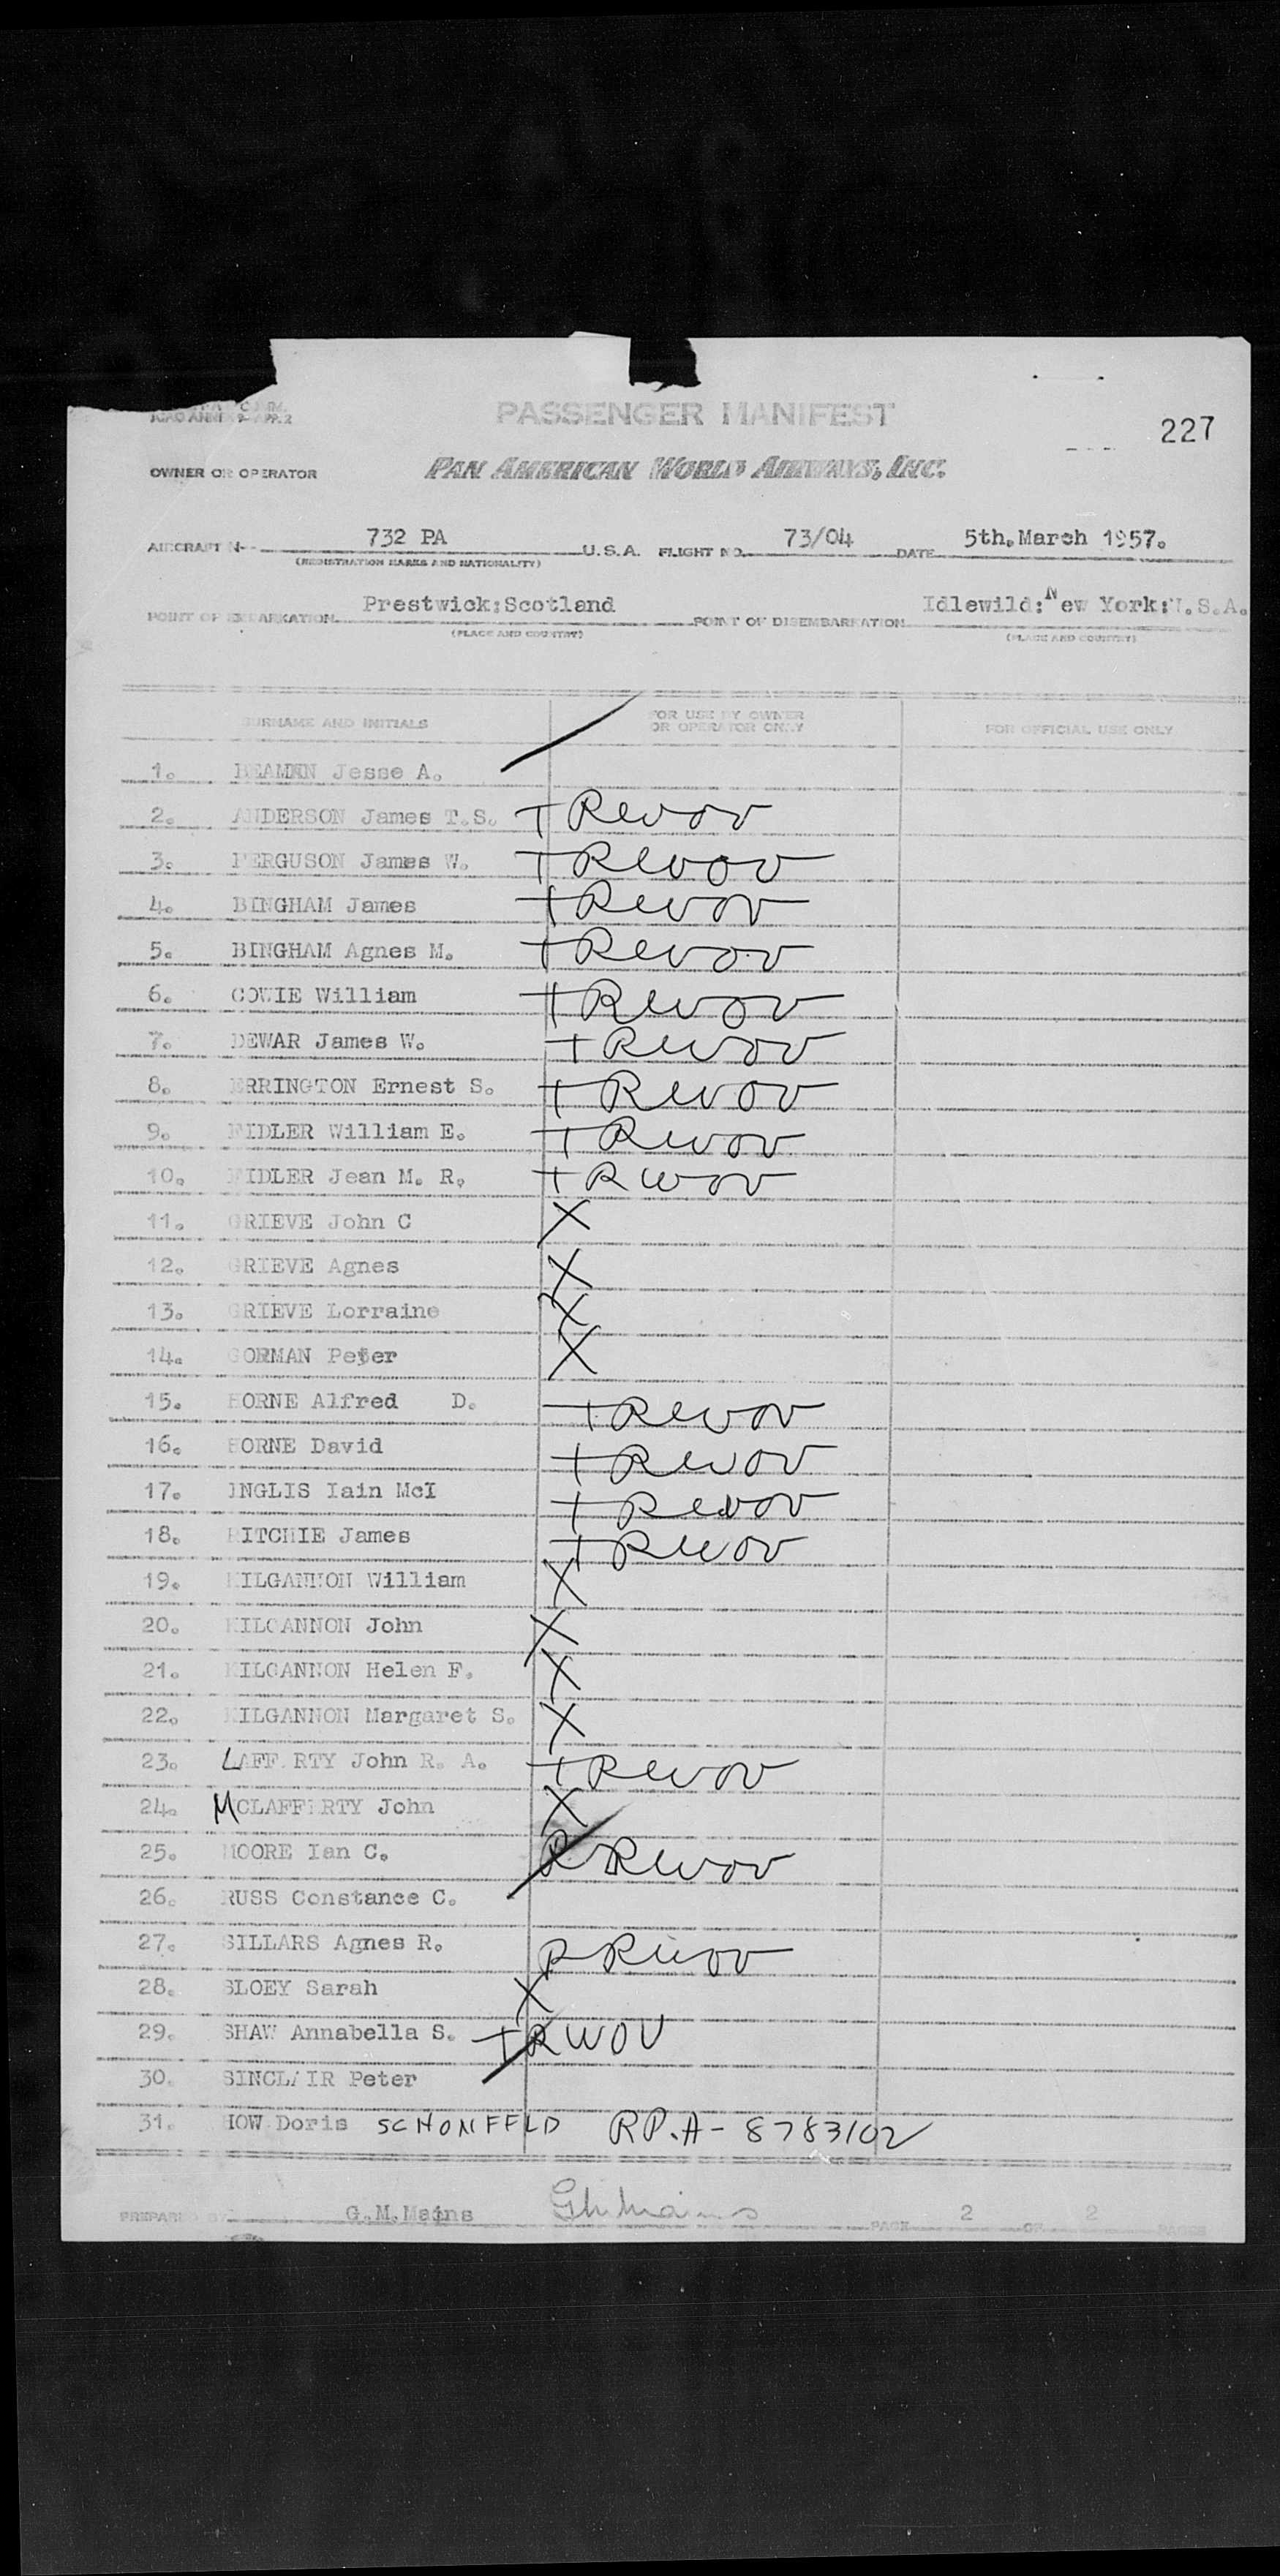 ICAO ANNEX 9-APP.2
PASSENGER MANIFEST
227
OWNER OR OPERATOR PAN AMERICAN WORLD AIRWAYS, INC.
AIRCRAFT N-- 732 PA U.S.A. FLIGHT NO. 73/04 DATE 5th.March 1957.
(REGISTRATION MARKS AND NATIONALITY)
POINT OF EMBARKATION Prestwick:Scotland POINT OF DISEMBARKATION Idlewild:New York:U.S.A.
(PLACE AND COUNTRY) (PLACE AND COUNTRY)
SURNAME AND INITIALS FOR USE BY OWNER OR OPERATOR ONLY FOR OFFICIAL USE ONLY
1. Jesse A.
2. ANDERSON James T.S. + Revov
3. FERGUSON James W. + Revov
4. BINGHAM James + Revov
5. BINGHAM Agnes M. + Revov
6. COWIE William + Revov
7. DEWAR James W. + Revov
8. ERRINGTON Ernest S. + Revov
9. FIDLER William E. + Revov
10. FIDLER Jean M. R. + Revov
11. GRIEVE John C X
12. GRIEVE Agnes X
13. GRIEVE Lorraine X
14. GORMAN Peter X
15. HORNE Alfred D. + Revov
16. HORNE David + Revov
17. INGLIS Iain McI + Revov
18. RITCHIE James + Revov
19. KILGANNON William X
20. KILGANNON John X
21. KILGANNON Helen F. X
22. KILGANNON Margaret S. X
23. LAFFERTY John R. A. + Revov
24. MCLAFFERTY John X
25. MOORE Ian C. R Revov
26. RUSS Constance C.
27. SILLARS Agnes R. R Revov
28. SLOEY Sarah X
29. SHAW Annabella S. + RWOV
30. SINCLAIR Peter
31. HOW Doris SCHONFELD RP.A-8783102
PREPARED BY G.M.Mains GMMains PAGE 2 OF 2 PAGES